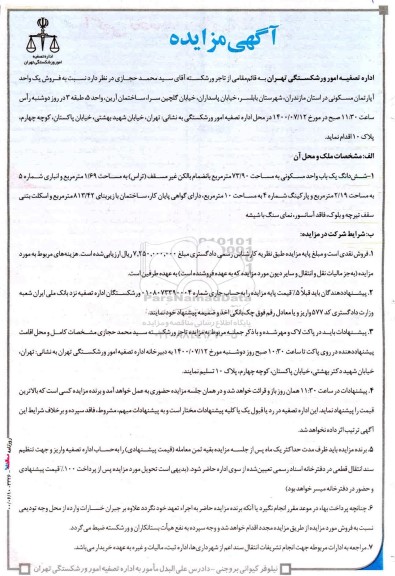 اداره تصفیه
امور ورشکستگی تهران
آگهی مزایده
اداره تصفیه امور ورشکستگی تهران به قائم‌مقامی از تاجر ورشکسته آقای سید محمد حجازی در نظر دارد نسبت به فروش یک واحد
آپارتمان مسکونی در استان مازندران، شهرستان بابلسر، خیابان پاسداران، خیابان گلچین سرا، ساختمان آرین، واحد ۵، طبقه ۳ در روز دوشنبه رأس
ساعت ۱۱:۳۰ صبح در مورخ ۱۴۰۰/۰۷/۱۲ در محل اداره تصفیه امور ورشکستگی به نشانی: تهران، خیابان شهید بهشتی، خیابان پاکستان، کوچه چهارم،
پلاک ۱۰ اقدام نماید.
الف: مشخصات ملک و محل آن
۱- شش‌دانگ یک باب واحد مسکونی به مساحت ۷۳/۹۰ مترمربع بانضمام بالکن غیر مسقف (تراس) به مساحت ۱/۶۹ مترمربع و انباری شماره ۵
به مساحت ۲/۱۹ مترمربع و پارکینگ شماره ۴ به مساحت ۱۰ مترمربع، دارای گواهی پایان کار، ساختمان با زیربنای ۸۱۳/۴۲ مترمربع و اسکلت بتنی
سقف تیرچه و بلوک، فاقد آسانسور، نمای سنگ با شیشه
ب: شرایط شرکت در مزایده:
۱. فروش نقدی است و مبلغ پایه مزایده طبق نظریه کارشناس رسمی دادگستری مبلغ ۷,۲۵۰,۰۰۰,۰۰۰ ریال ارزیابی شده است. هزینه‌های مربوط به مورد
مزایده (به جز مالیات نقل و انتقال و سایر دیون مورد مزایده که به عهده فروشنده است) به عهده طرفین است.
۲. پیشنهاددهندگان باید قبلاً ۵٪ قیمت پایه مزایده را به حساب جاری شماره ورشکستگان اداره تصفیه نزد بانک ملی ایران شعبه
وزارت دادگستری کد ۵۷۷ واریز و یا معادل رقم فوق چک بانکی اخذ و ضمیمه پیشنهاد خود نمایند.
۳. پیشنهادات باید در پاکت لاک و مهر شده و با ذکر جمله مربوط به مزایده تاجر ورشکسته سید محمد حجازی مشخصات کامل و محل اقامت
پیشنهاددهنده در روی پاکت تا ساعت ۱۰:۳۰ صبح روز دوشنبه مورخ ۱۴۰۰/۰۷/۱۲ به دبیرخانه اداره تصفیه امور ورشکستگی تهران به نشانی: تهران،
خیابان شهید دکتر بهشتی، خیابان پاکستان، کوچه چهارم، پلاک ۱۰ تسلیم نمایند.
۴. پیشنهادات در ساعت ۱۱:۳۰ همان روز باز و قرائت خواهد شد و در همان جلسه مزایده حضوری به عمل خواهد آمد و برنده مزایده کسی است که بالاترین
قیمت را پیشنهاد نماید. این اداره تصفیه در رد یا قبول یک یا کلیه پیشنهادات مختار است و به پیشنهادات مبهم، مشروط، فاقد سپرده و برخلاف شرایط این
آگهی ترتیب اثر داده نخواهد شد.
۵. برنده مزایده باید ظرف مدت حداکثر یک ماه پس از جلسه مزایده بقیه ثمن معامله (قیمت پیشنهادی) را به حساب اداره تصفیه واریز و جهت تنظیم
سند انتقال قطعی در دفترخانه اسناد رسمی تعیین‌شده از سوی اداره حاضر شود. (بدیهی است تحویل مورد مزایده پس از پرداخت ۱۰۰٪ قیمت پیشنهادی
و حضور در دفترخانه میسر خواهد بود)
۶. چنانچه پرداخت بهاء در موعد مقرر انجام نگیرد یا آنکه برنده مزایده حاضر به اجراء تعهد خود نگردد علاوه بر جبران خسارات وارده از محل وجه تودیعی
نسبت به فروش مورد مزایده از طریق مزایده مجدد اقدام خواهد شد و وجه سپرده به نفع هیأت بستانکاران و ورشکسته ضبط می‌گردد.
۷. مراجعه به ادارات مربوطه جهت انجام تشریفات انتقال سند اعم از شهرداری‌ها، اداره ثبت، مالیات و غیره به عهده خریدار می‌باشد.
نیلوفر کیوانی بروجنی - دادرس علی البدل مأمور به اداره تصفیه امور ورشکستگی تهران